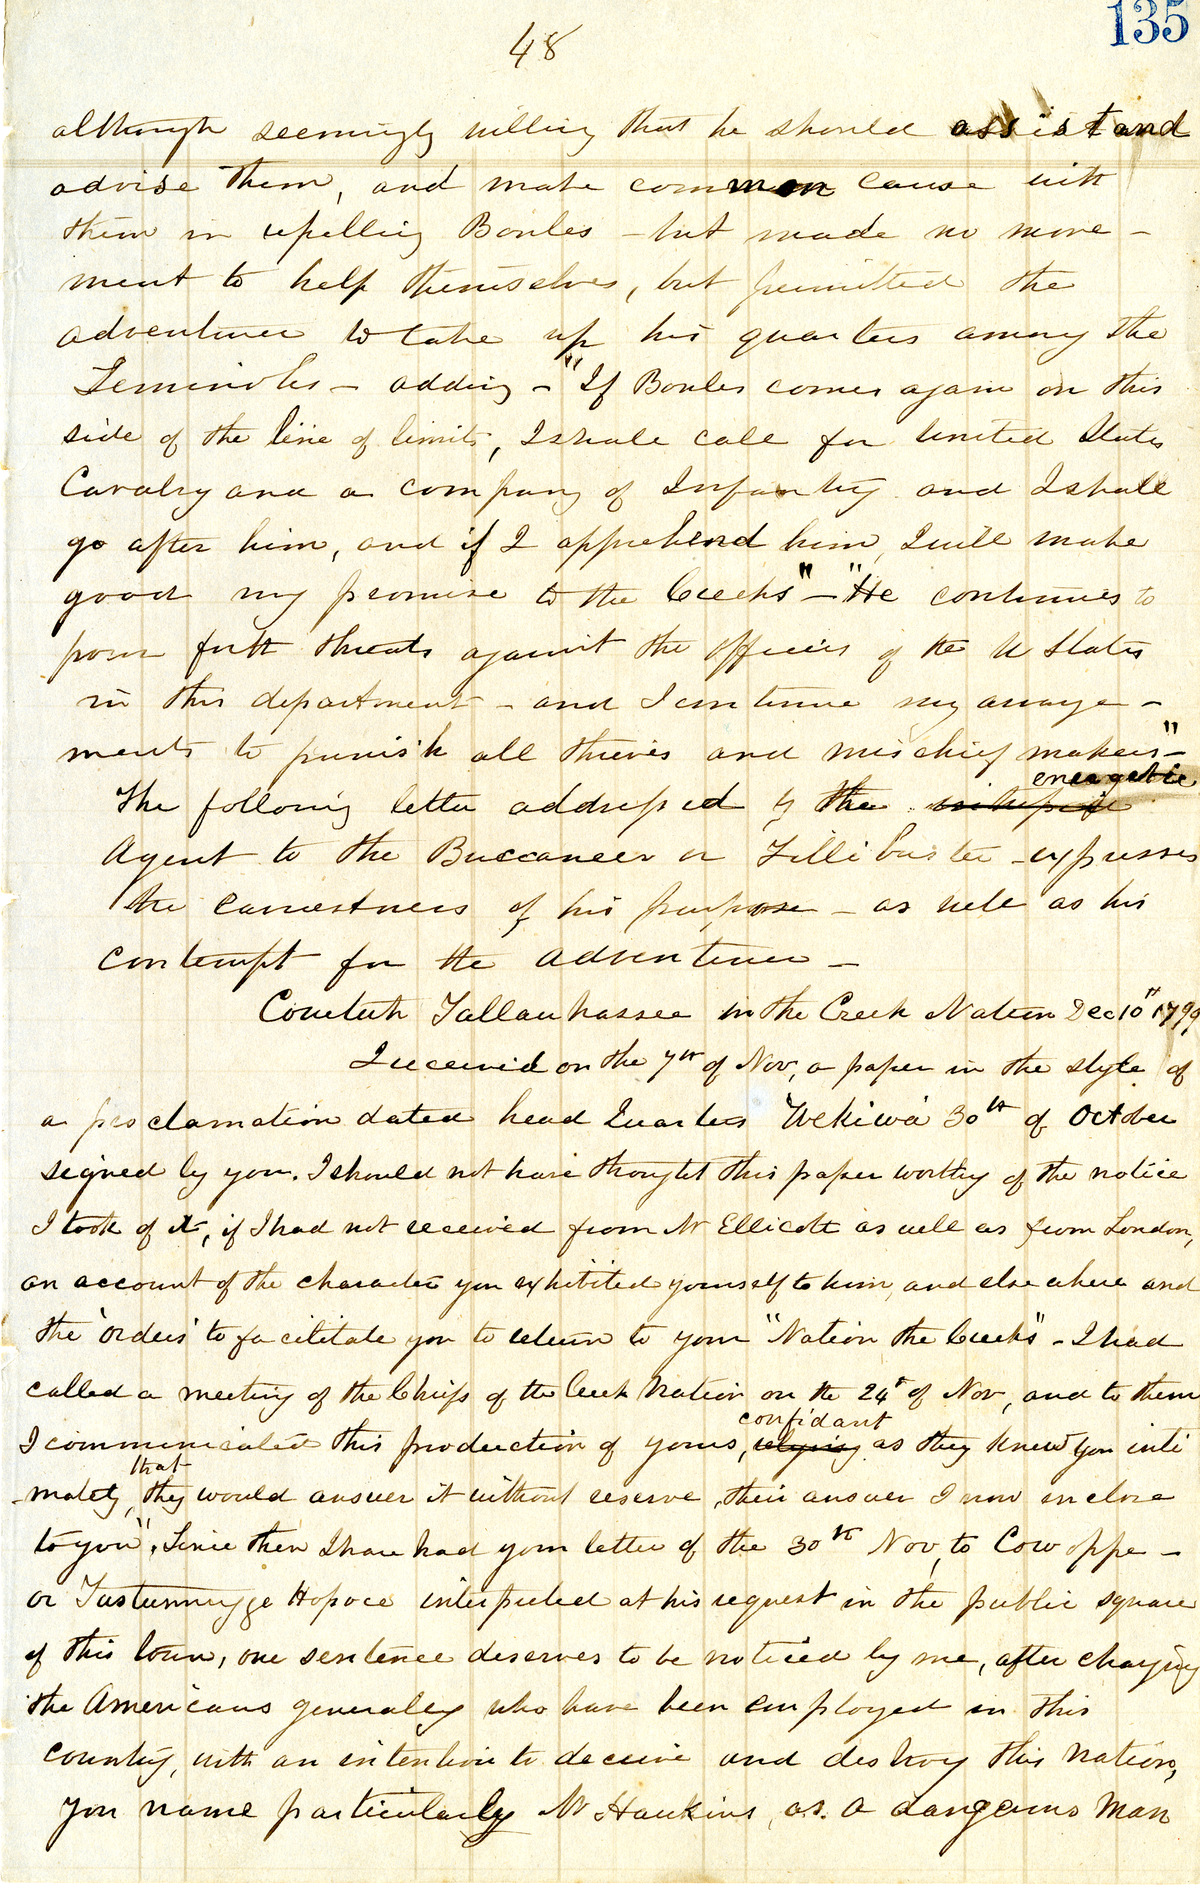 135
48
although seemingly willing that he should assist and
advise them, and make common cause with
them in repelling Bowles – but made no move –
ment to help themselves, but permitted the
adventurer to take up his quarters among the
Seminoles – adding – "If Bowles comes again on this
side of the line of limits, I shall call for United States
Cavalry and a company of Infantry and I shall
go after him, and if I apprehend him, I will make
good my promise to the Creeks" – "He continues to
pour forth threats against the officers of the U States
in this department – and I continue my arrange –
ments to punish all thieves and mischief makers" –
energetic
The following letter addressed by the
Agent to the Buccaneer or Fillibuster – expresses
the earnestness of his purpose – as well as his
contempt for the adventurer –
Cowetuh Tallauhassee in the Creek Nation Dec 10th 1799
I received on the 7th of Nov, a paper in the style of
a proclamation dated head Quarters 'Wekiwa' 30th of October
signed by you. I should not have thought this paper worthy of the notice
I took of it, if I had not received from Mr Ellicott as well as from London,
an account of the character you exhibited yourself to him, and elsewhere and
the 'orders' to facilitate you to return to your "Nation the Creeks" – I had
called a meeting of the Chiefs of the Creek Nation on the 24th of Nov, and to them
confidant
I communicated this production of yours, relying as they knew you inti
that
– mately, they would answer it without reserve, their answer I now inclose
to you", Since then I have had your letter of the 30th Nov, to Cowoppe –
or Tustunnugge Hopoie interpreted at his request in the public square
of this town, one sentence deserves to be noticed by me, after charging
the Americans generally who have been employed in this
country, with an intention to deceive and destroy this Nation,
you name particularly Mr Hawkins, as a dangerous man